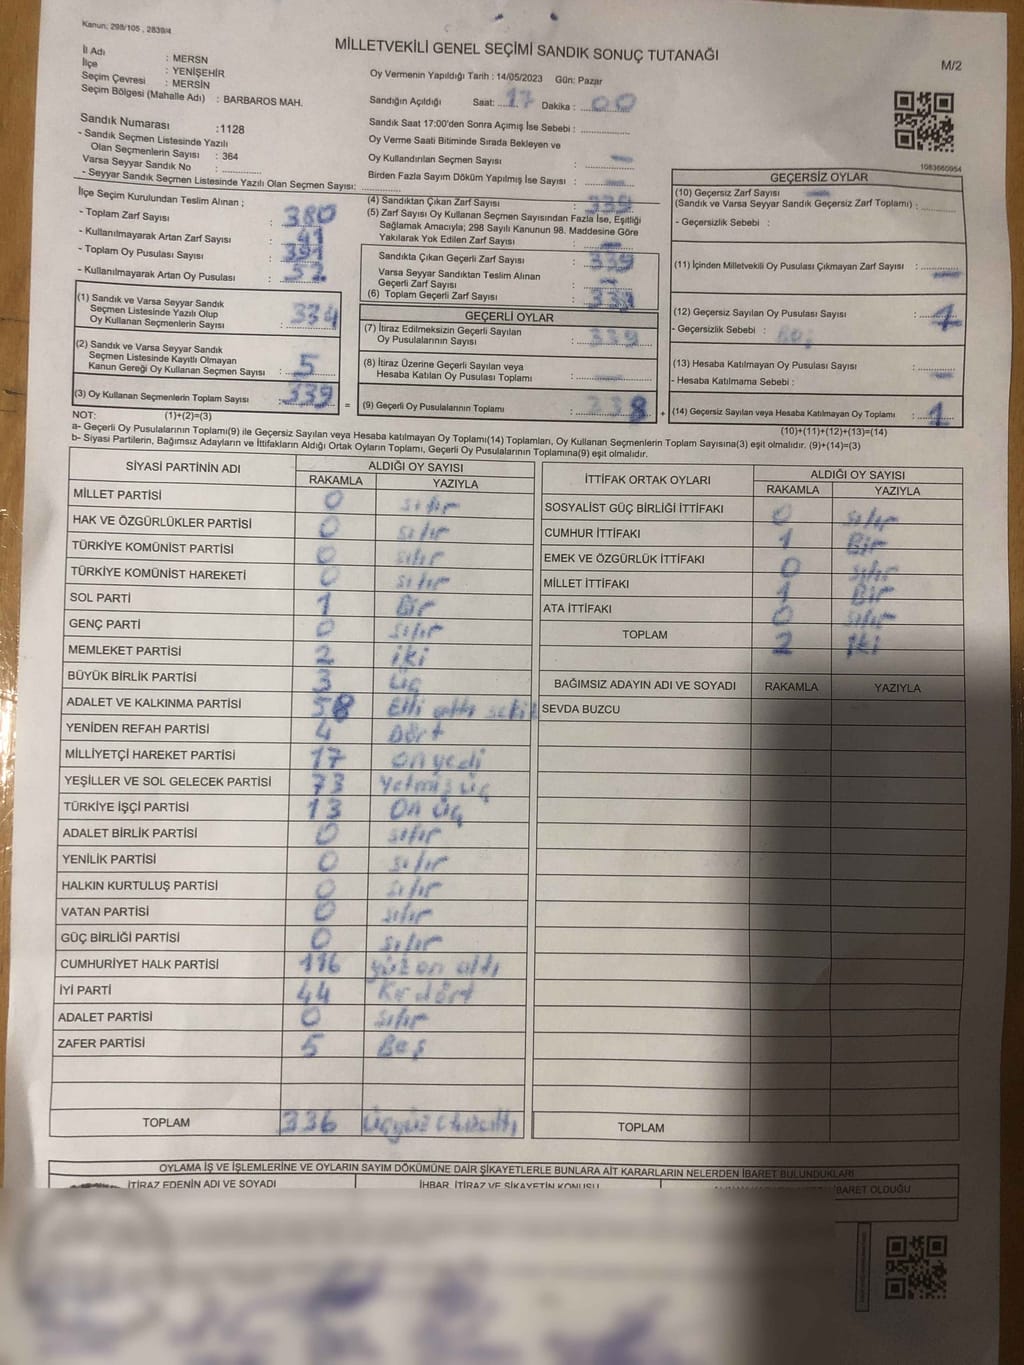 Kanun; 298/105 , 2839/4
MİLLETVEKİLİ GENEL SEÇİMİ SANDIK SONUÇ TUTANAĞI
M/2
İl Adı : MERSN
İlçe : YENİŞEHİR
Seçim Çevresi : MERSİN
Seçim Bölgesi (Mahalle Adı) : BARBAROS MAH.
Sandık Numarası :1128
- Sandık Seçmen Listesinde Yazılı
Olan Seçmenlerin Sayısı : 364
Varsa Seyyar Sandık No :
- Seyyar Sandık Seçmen Listesinde Yazılı Olan Seçmen Sayısı:
Oy Vermenin Yapıldığı Tarih : 14/05/2023 Gün: Pazar
Sandığın Açıldığı Saat: 17 Dakika : 00
Sandık Saat 17:00'den Sonra Açımış İse Sebebi :
Oy Verme Saati Bitiminde Sırada Bekleyen ve
Oy Kullandırılan Seçmen Sayısı :
Birden Fazla Sayım Döküm Yapılmış İse Sayısı :
1083660954
İlçe Seçim Kurulundan Teslim Alınan ;
- Toplam Zarf Sayısı : 380
- Kullanılmayarak Artan Zarf Sayısı : 41
- Toplam Oy Pusulası Sayısı : 391
- Kullanılmayarak Artan Oy Pusulası : 52
(1) Sandık ve Varsa Seyyar Sandık
Seçmen Listesinde Yazılı Olup
Oy Kullanan Seçmenlerin Sayısı : 334
(2) Sandık ve Varsa Seyyar Sandık
Seçmen Listesinde Kayıtlı Olmayan
Kanun Gereği Oy Kullanan Seçmen Sayısı : 5
(3) Oy Kullanan Seçmenlerin Toplam Sayısı : 339
(4) Sandıktan Çıkan Zarf Sayısı : 339
(5) Zarf Sayısı Oy Kullanan Seçmen Sayısından Fazla İse, Eşitliği
Sağlamak Amacıyla; 298 Sayılı Kanunun 98. Maddesine Göre
Yakılarak Yok Edilen Zarf Sayısı :
Sandıkta Çıkan Geçerli Zarf Sayısı : 339
Varsa Seyyar Sandıktan Teslim Alınan
Geçerli Zarf Sayısı :
(6) Toplam Geçerli Zarf Sayısı : 339
GEÇERLİ OYLAR
(7) İtiraz Edilmeksizin Geçerli Sayılan
Oy Pusulalarının Sayısı : 339
(8) İtiraz Üzerine Geçerli Sayılan veya
Hesaba Katılan Oy Pusulası Toplamı :
= (9) Geçerli Oy Pusulalarının Toplamı : 338 +
GEÇERSİZ OYLAR
(10) Geçersiz Zarf Sayısı
(Sandık ve Varsa Seyyar Sandık Geçersiz Zarf Toplamı) :
- Geçersizlik Sebebi :
(11) İçinden Milletvekili Oy Pusulası Çıkmayan Zarf Sayısı :
(12) Geçersiz Sayılan Oy Pusulası Sayısı : 1
- Geçersizlik Sebebi :
(13) Hesaba Katılmayan Oy Pusulası Sayısı :
- Hesaba Katılmama Sebebi :
(14) Geçersiz Sayılan veya Hesaba Katılmayan Oy Toplamı : 1
NOT: (1)+(2)=(3)
(10)+(11)+(12)+(13)=(14)
a- Geçerli Oy Pusulalarının Toplamı(9) ile Geçersiz Sayılan veya Hesaba katılmayan Oy Toplamı(14) Toplamları, Oy Kullanan Seçmenlerin Toplam Sayısına(3) eşit olmalıdır. (9)+(14)=(3)
b- Siyasi Partilerin, Bağımsız Adayların ve İttifakların Aldığı Ortak Oyların Toplamı, Geçerli Oy Pusulalarının Toplamına(9) eşit olmalıdır.
SİYASİ PARTİNİN ADI ALDIĞI OY SAYISI
RAKAMLA YAZIYLA
MİLLET PARTİSİ 0 sıfır
HAK VE ÖZGÜRLÜKLER PARTİSİ 0 sıfır
TÜRKİYE KOMÜNİST PARTİSİ 0 sıfır
TÜRKİYE KOMÜNİST HAREKETİ 0 sıfır
SOL PARTİ 1 Bir
GENÇ PARTİ 0 sıfır
MEMLEKET PARTİSİ 2 iki
BÜYÜK BİRLİK PARTİSİ 3 üç
ADALET VE KALKINMA PARTİSİ 58 Elli sekiz
YENİDEN REFAH PARTİSİ 4 Dört
MİLLİYETÇİ HAREKET PARTİSİ 17 on yedi
YEŞİLLER VE SOL GELECEK PARTİSİ 73 Yetmiş üç
TÜRKİYE İŞÇİ PARTİSİ 13 On üç
ADALET BİRLİK PARTİSİ 0 sıfır
YENİLİK PARTİSİ 0 sıfır
HALKIN KURTULUŞ PARTİSİ 0 sıfır
VATAN PARTİSİ 0 sıfır
GÜÇ BİRLİĞİ PARTİSİ 0 sıfır
CUMHURİYET HALK PARTİSİ 116 yüz on altı
İYİ PARTİ 44 Kırdört
ADALET PARTİSİ 0 sıfır
ZAFER PARTİSİ 5 Beş
TOPLAM 336
İTTİFAK ORTAK OYLARI ALDIĞI OY SAYISI
RAKAMLA YAZIYLA
SOSYALİST GÜÇ BİRLİĞİ İTTİFAKI 0 sıfır
CUMHUR İTTİFAKI 1 Bir
EMEK VE ÖZGÜRLÜK İTTİFAKI 0 sıfır
MİLLET İTTİFAKI 1 Bir
ATA İTTİFAKI 0 sıfır
TOPLAM 2 İki
BAĞIMSIZ ADAYIN ADI VE SOYADI RAKAMLA YAZIYLA
SEVDA BUZCU
TOPLAM
OYLAMA İŞ VE İŞLEMLERİNE VE OYLARIN SAYIM DÖKÜMÜNE DAİR ŞİKAYETLERLE BUNLARA AİT KARARLARIN NELERDEN İBARET BULUNDUKLARI
İTİRAZ EDENİN ADI VE SOYADI İHBAR, İTİRAZ VE ŞİKAYETİN KONUSU İBARET OLDUĞU